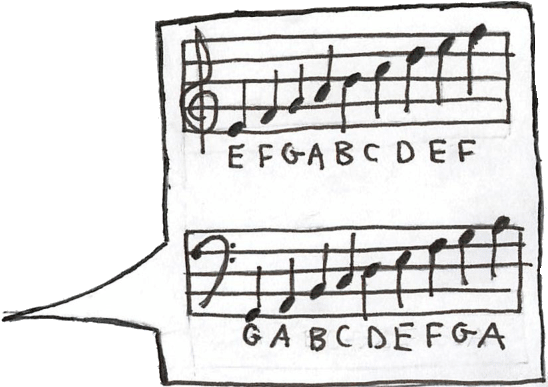 E F G A B C D E F
G A B C D E F G A